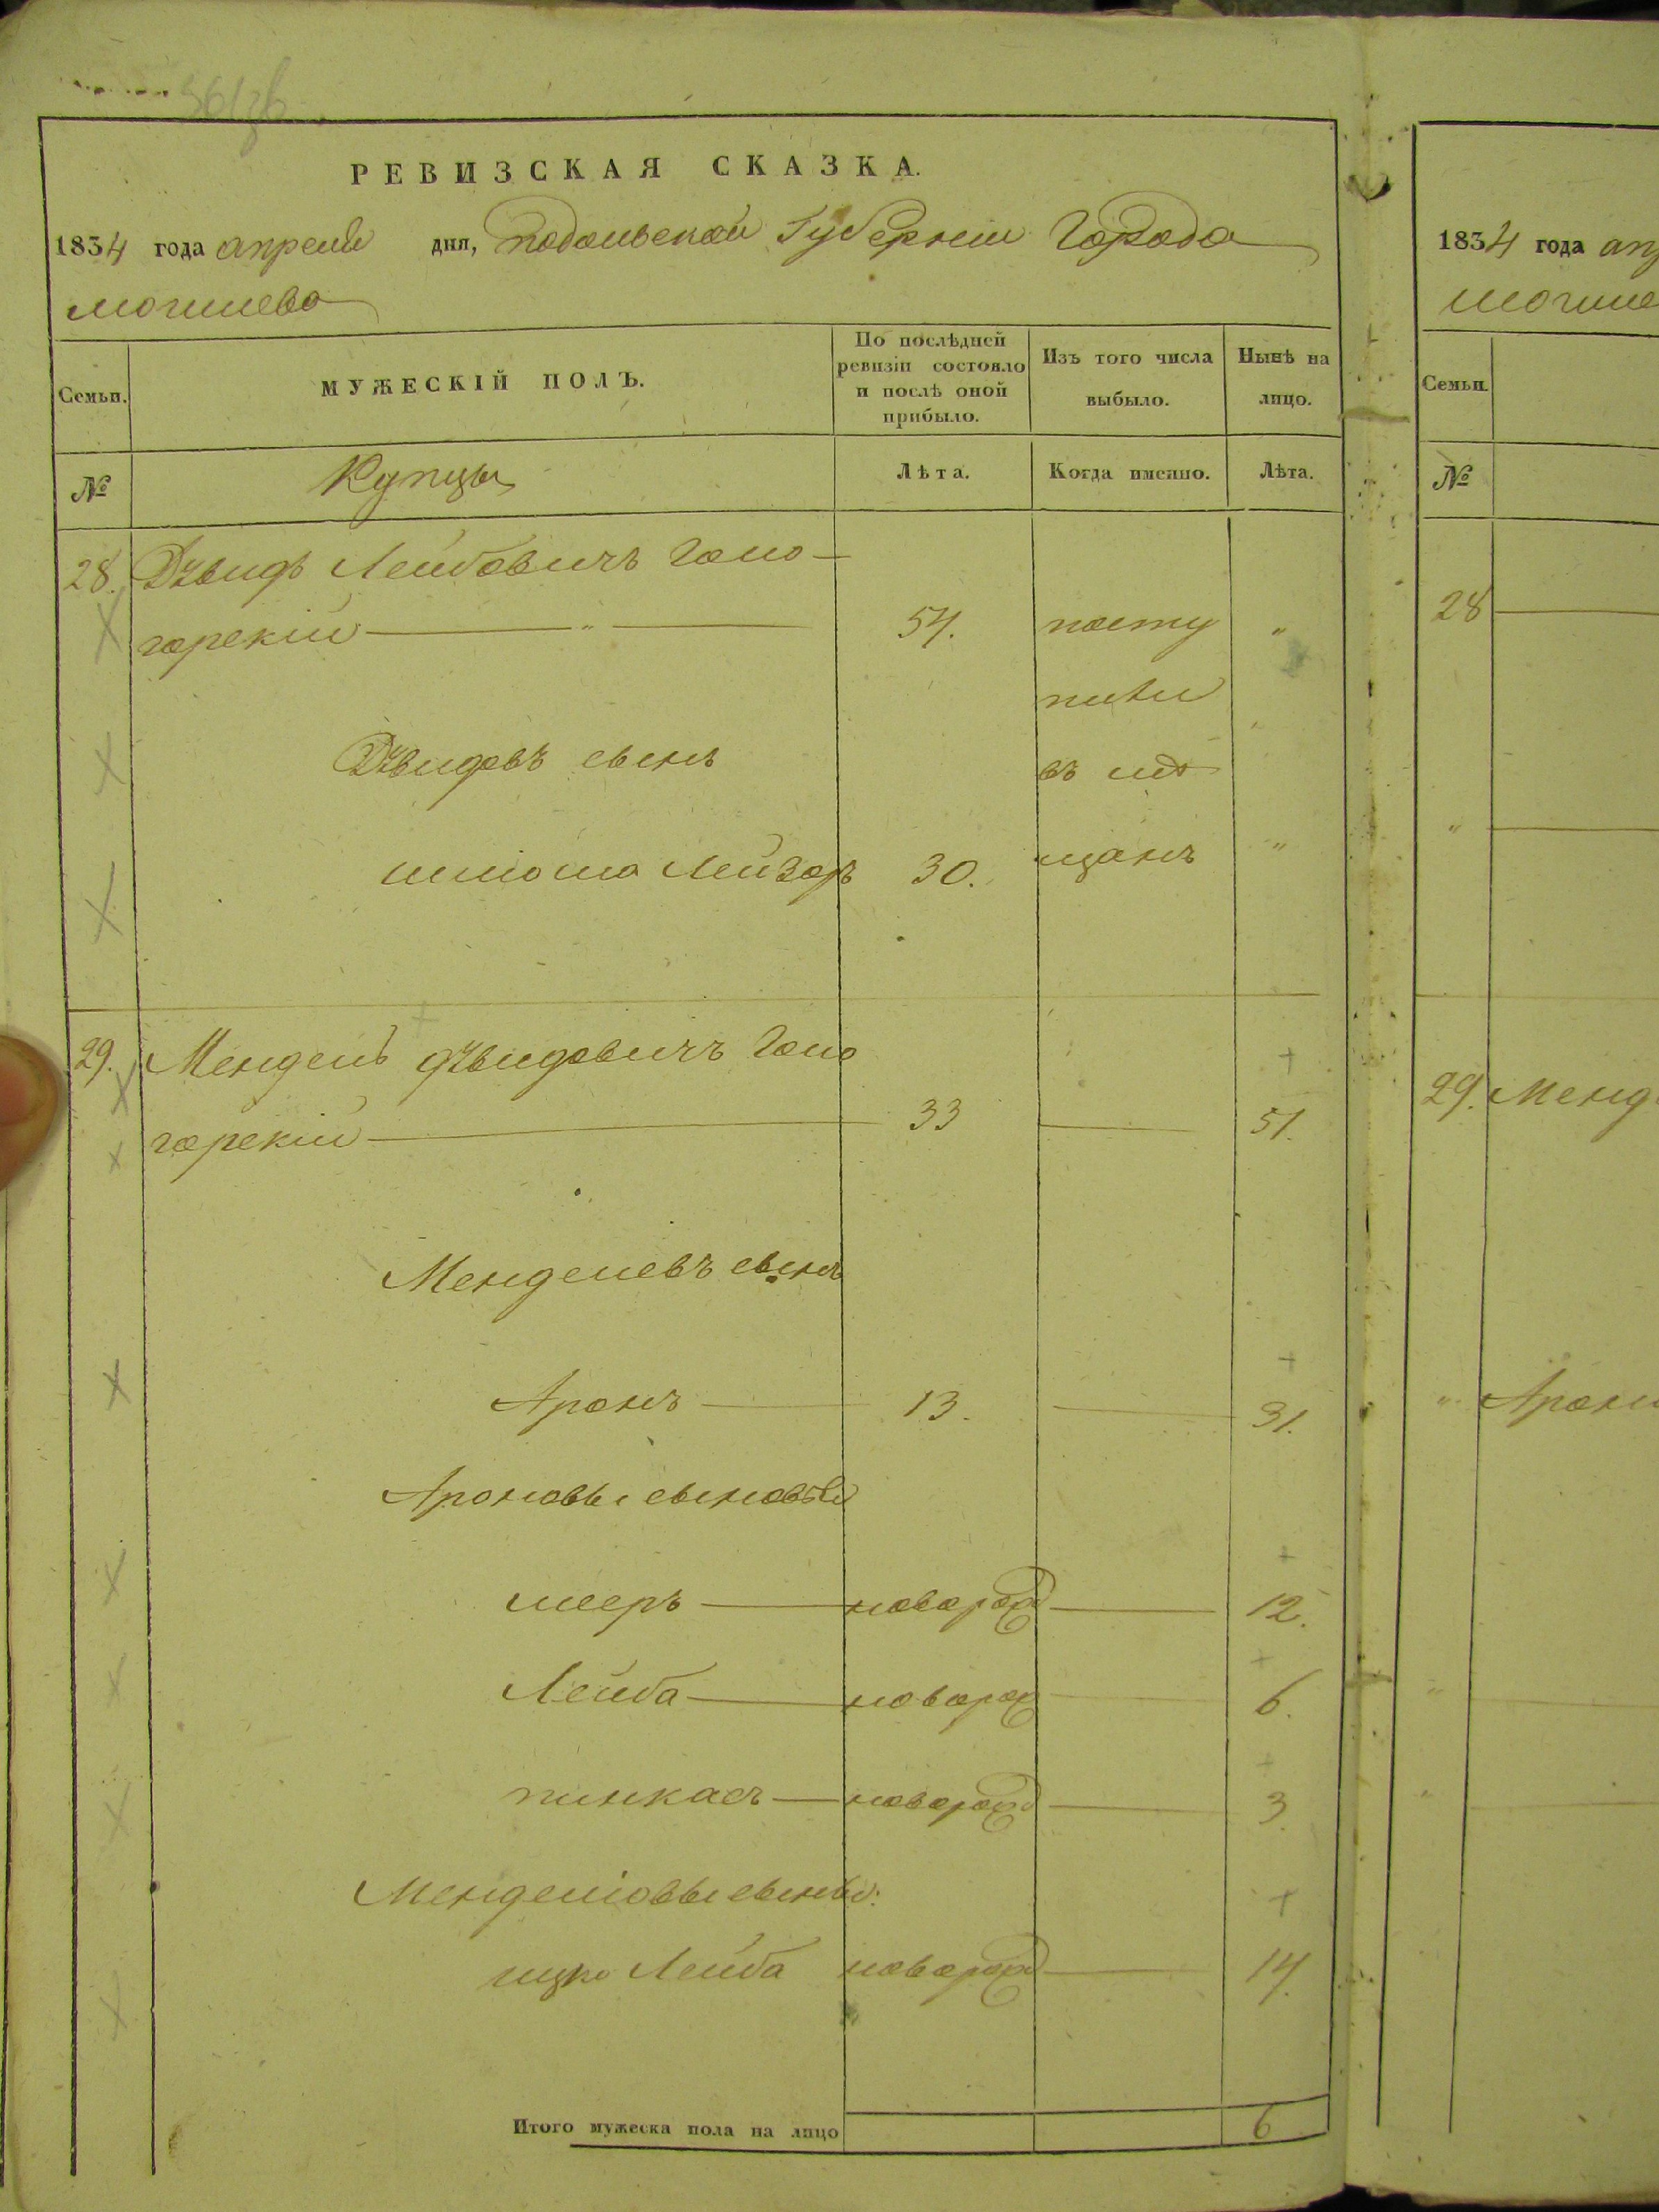 РЕВИЗСКАЯ СКАЗКА.
1834 года апреля дня, Подольской Губернии Города
Могилева
Семьи.
МУЖЕСКІЙ ПОЛЪ.
По послѣдней ревизіи состояло и послѣ оной прибыло.
Изъ того числа выбыло.
Нынѣ на лицо.
№
Купцы
Лѣта.
Когда именно.
Лѣта.
28. Дувидъ ЛейбовичъГоло-
горскій — „ — 54. посту „
пили
Дувидовъ сынъ въ мѣ
Шлiома Лейзоръ 30. щанъ „
29. Мендель Дувидовичъ Голо
горскій — 33 — 51.
Менделевъ сынъ
Аронъ — 13. — 31.
Ароновы сыновья
Мееръ — новорож — 12.
Лейба — новорож — 6.
Пинкасъ — новорож — 3.
Менделiовы сыны:
Ицко Лейба новорож — 14.
Итого мужеска пола на лицо 6
1834 года апр
Могиле
Семьи.
№
28
„
29. Менд
„ Арон
„
„